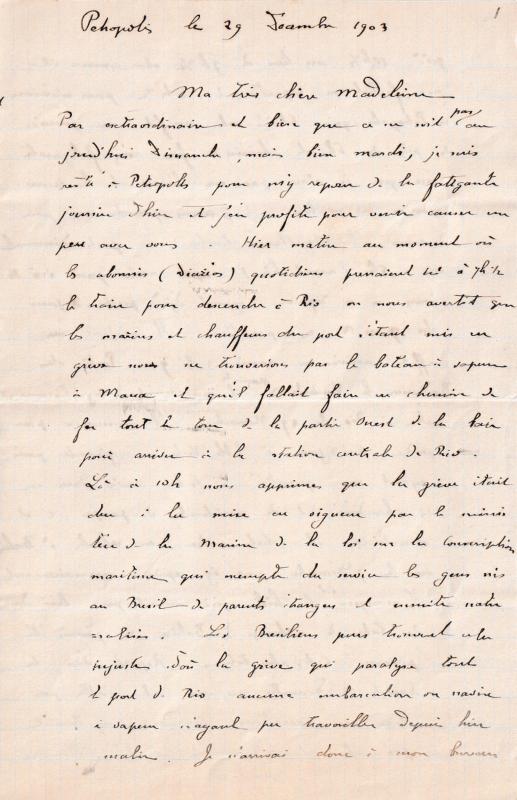 1
Petropolis le 29 Décembre 1903
Ma très chère Madeleine
Par extraordinaire et bien que ce ne soit pas au
jourd'hui Dimanche, mais bien mardi, je suis
resté à Petropolis pour m'y reposer de la fatigante
journée d'hier et j'en profite pour venir causer un
peu avec vous. Hier matin au moment où
les abonnés (Diarios) quotidiens prenaient ici à 7h ½
le train pour descendre à Rio on nous avertit que
les marins et chauffeurs du port s'étant mis en
grève nous ne trouverions pas le bateau à vapeur
à Maua et qu'il fallait faire en chemin de
fer tout le tour de la partie Ouest de la baie
pour arriver à la station centrale de Rio.
Là à 10h nous apprîmes que la grève était
due à la mise en vigueur par le minis
tère de la Marine de la loi sur la Conscription
maritime qui exempte du service les gens nés
au Bresil de parents étrangers et ensuite natu
ralisés. Les Bresiliens purs trouvent cela
injuste d'où la grève qui paralyse tout
le port de Rio aucune embarcation ou navire
à vapeur n'ayant pu travailler depuis hier
matin. Je n'arrivai donc à mon bureau